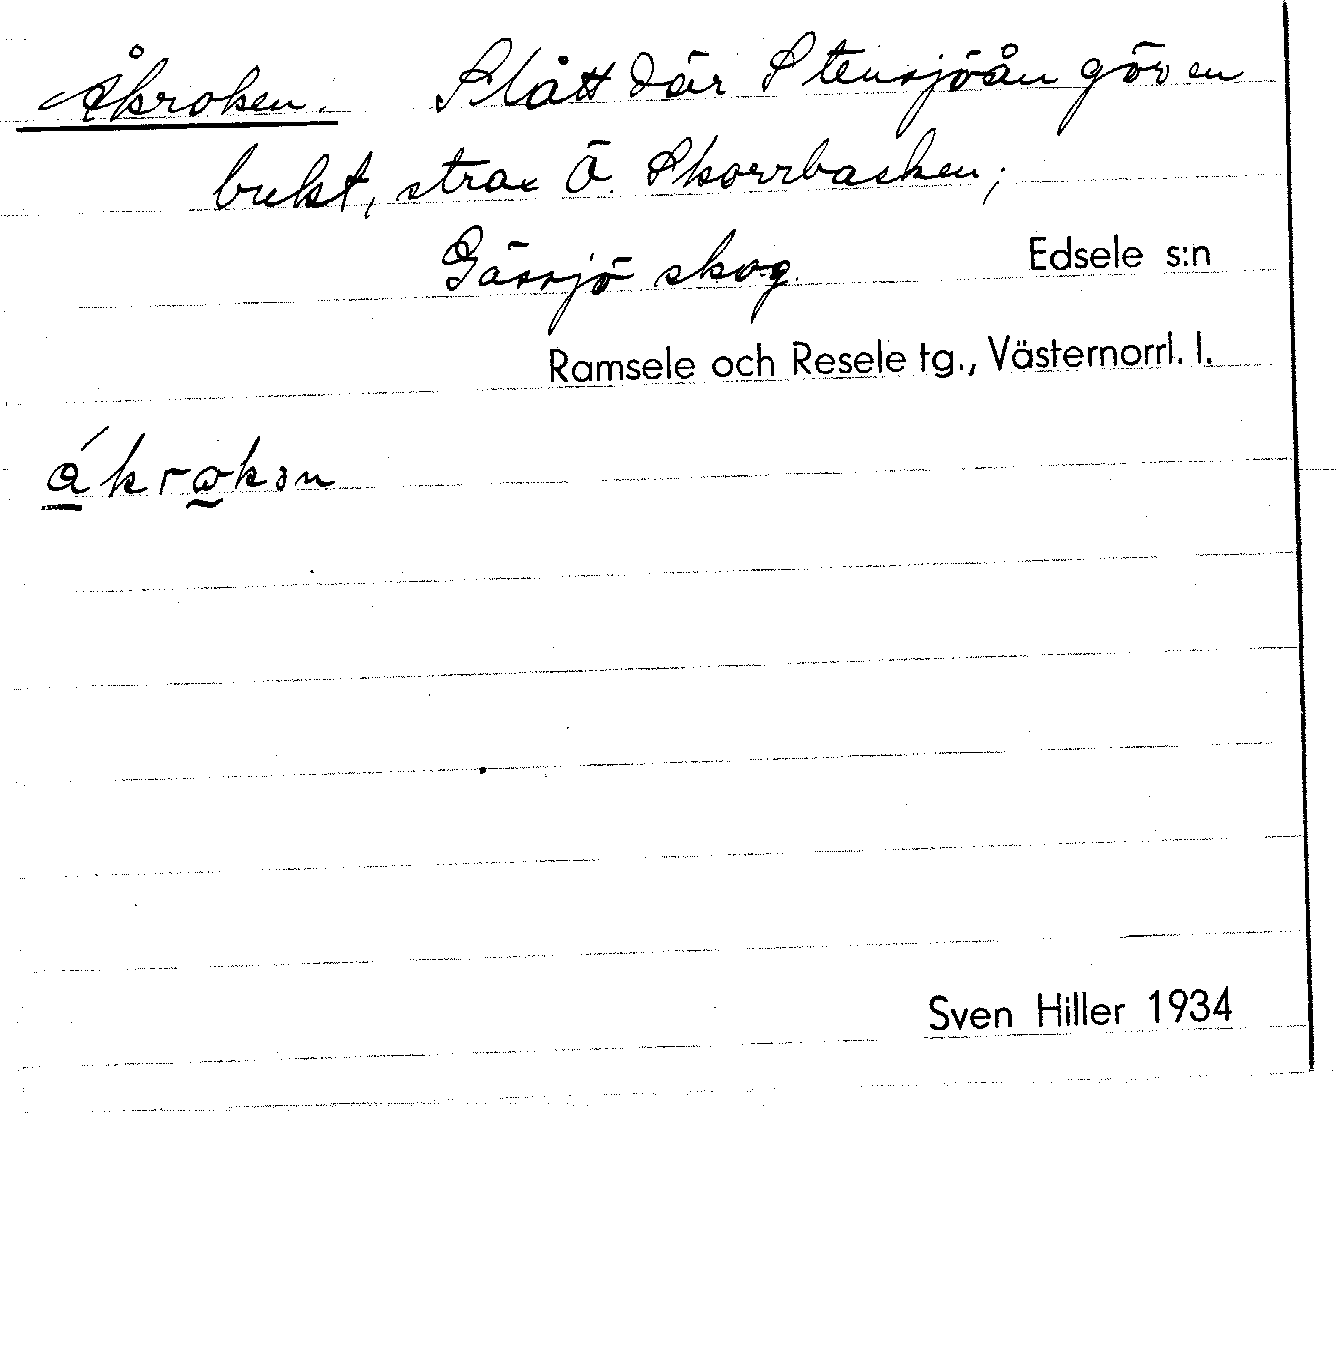 Åkroken. Slått där Stensjöån gör en
bukt, strax Ö. Skorrbacken;
Gåssjö skog. Edsele s:n
Ramsele och Resele tg., Västernorrl. l.
ákrokən
Sven Hiller 1934